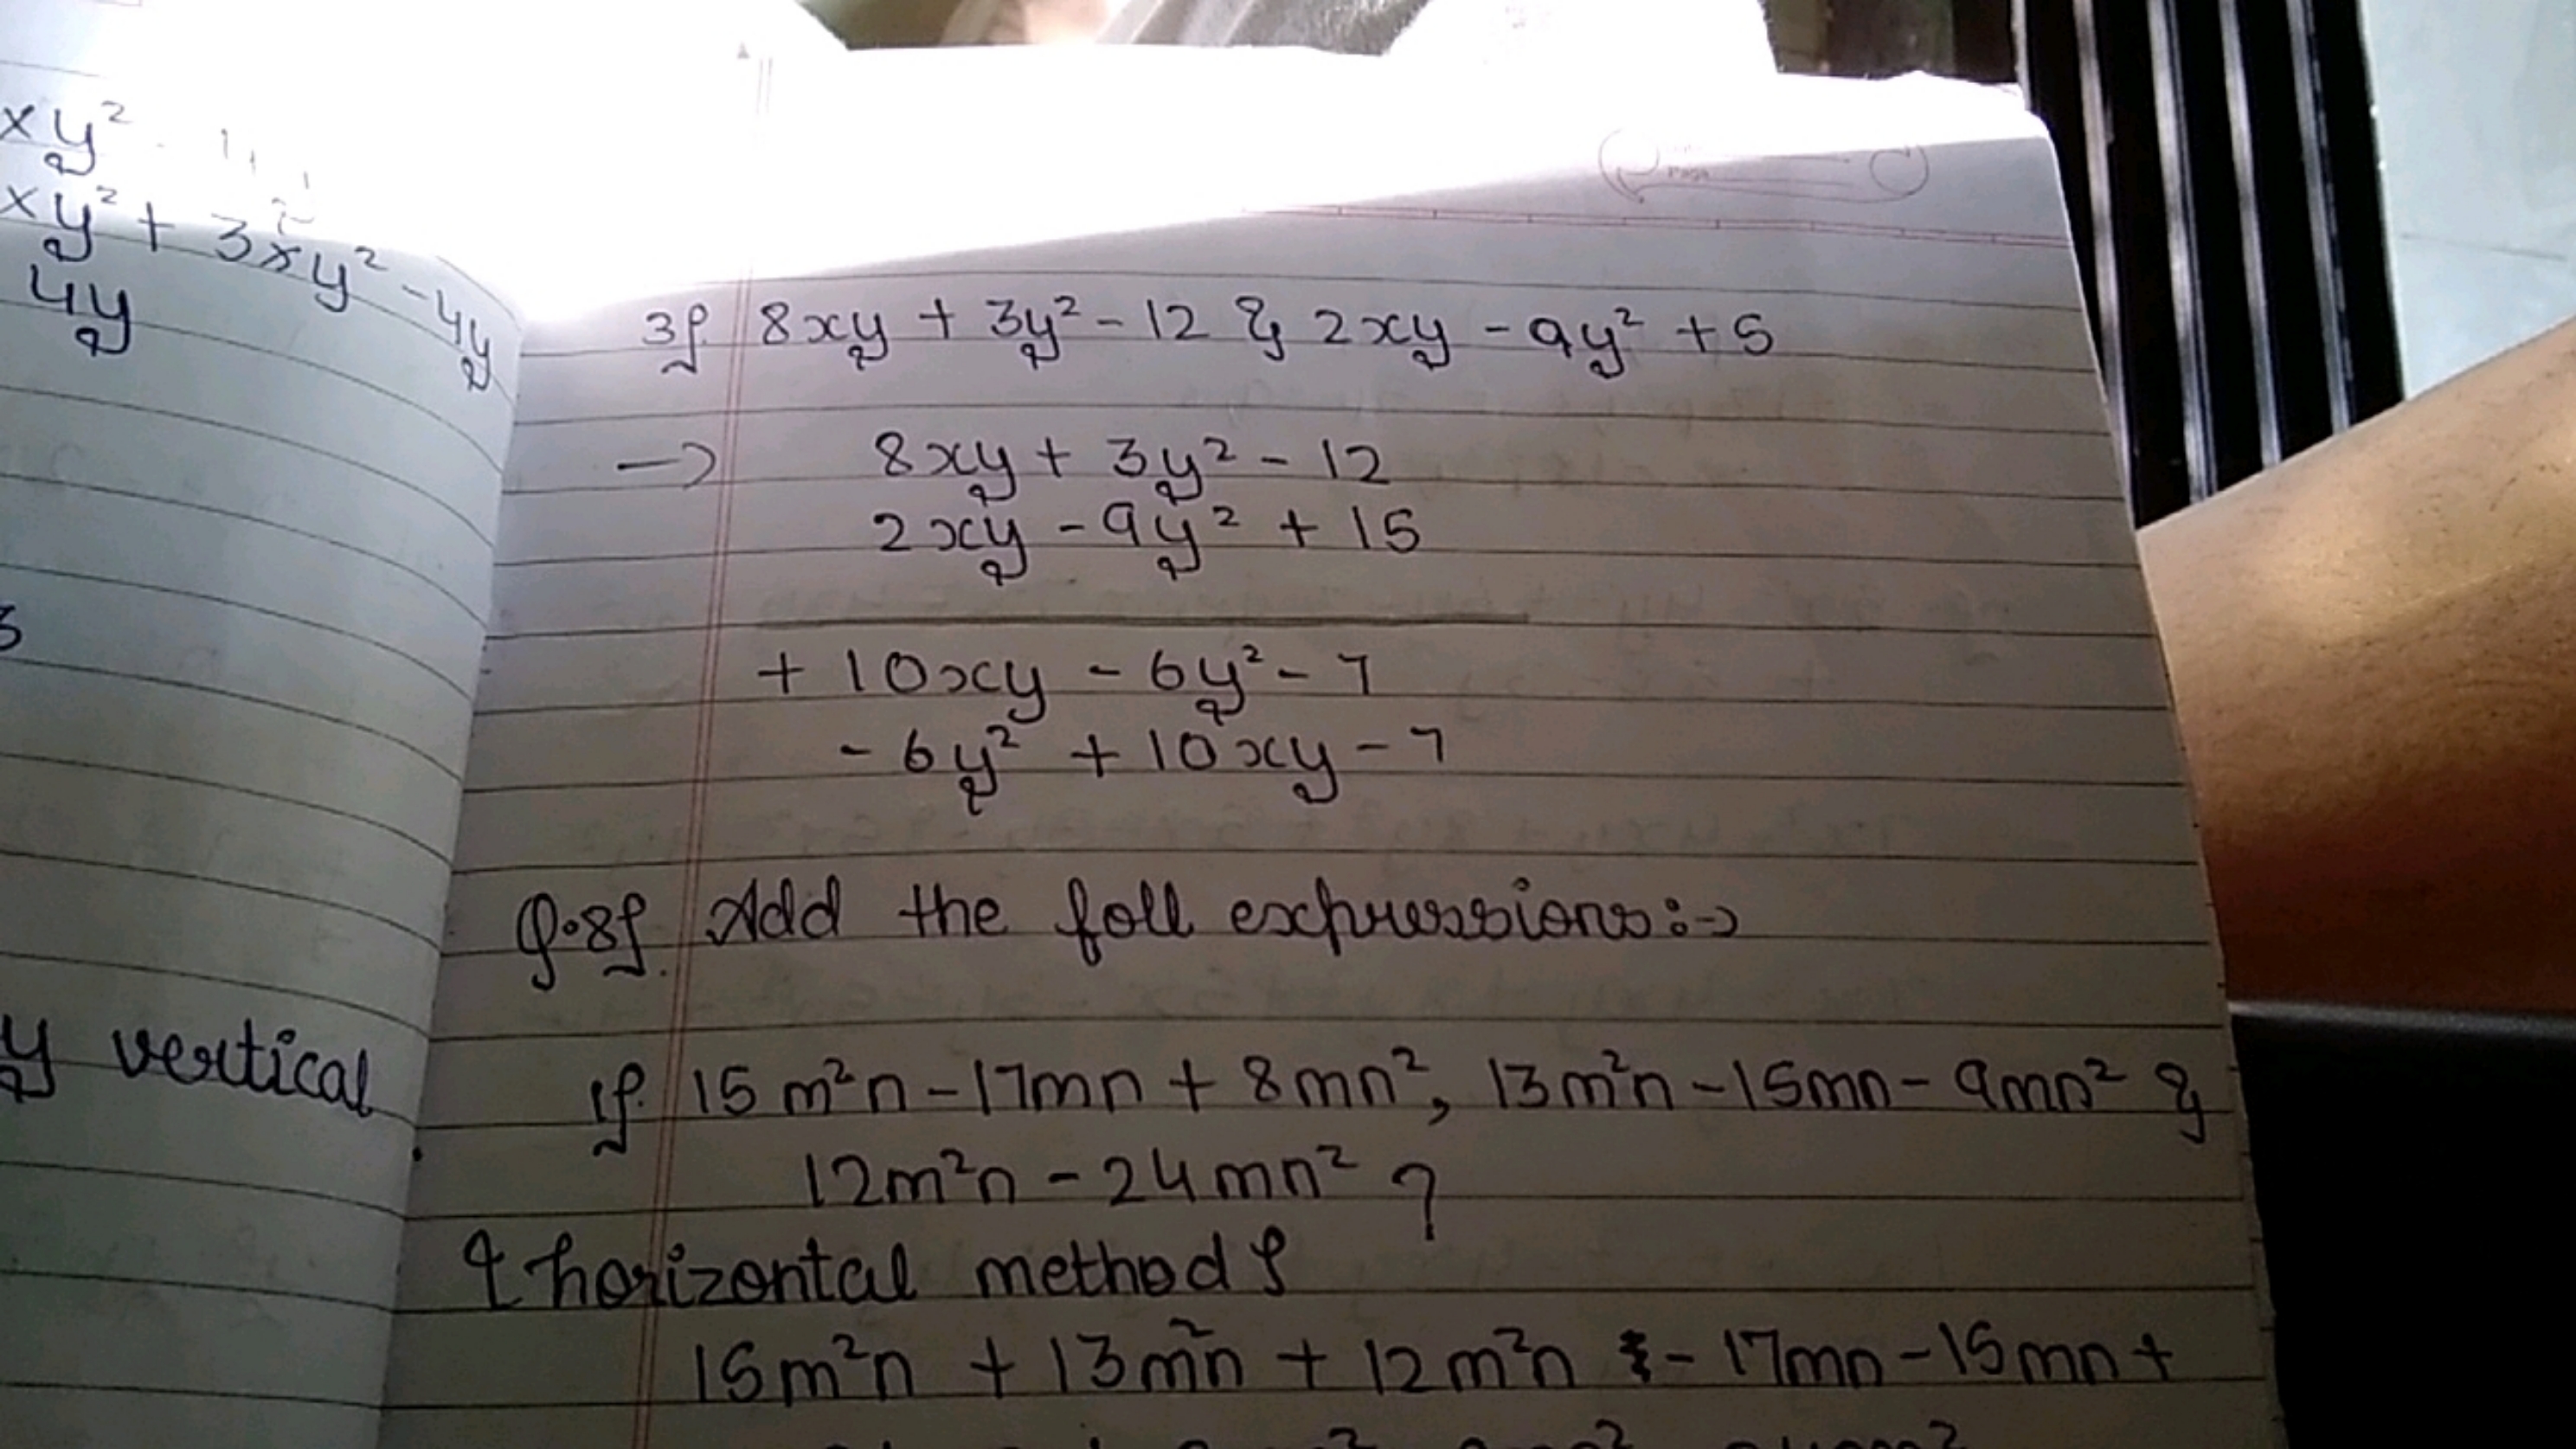 xy²
xy² + 3xy² - 4y
4y
3
y vertical
Page
3). 8xy + 3y² - 12 & 2xy - 9y² + 5
→ 8xy + 3y² - 12
2xy - 9y² + 15
+ 10xy - 6y² - 7
- 6y² + 10xy - 7
Q.8). Add the foll expressions:→
1). 15m²n - 17mn + 8mn², 13m²n - 15mn - 9mn² &
12m²n - 24mn² ?
{ horizontal method }
15m²n + 13m²n + 12m²n - 17mn - 15mn +